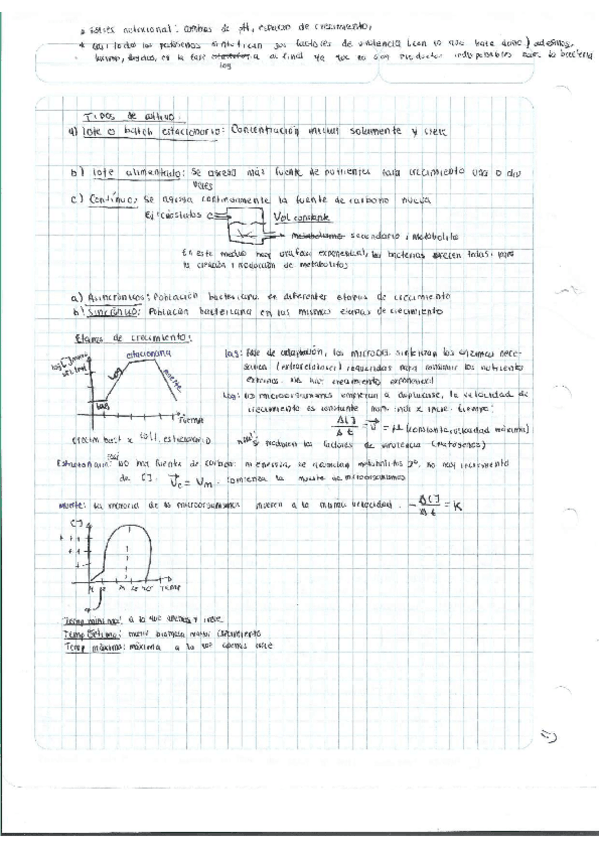 estrés nutricional: cambios de pH, espacio de crecimiento,
casi todos los patógenos sintetizan sus factores de virulencia (con lo que hace daño)
en la fase al final ya que no son productos indispensables para la bacteria
log
Tipos de cultivo:
a) Lote o batch estacionario: Concentración inicial solamente y crece
b) Lote alimentado: Se agrega más fuente de nutrientes para crecimiento una o dos
veces
c) Continuo: Se agrega continuamente la fuente de carbono nueva
Ej: Vol constante
secundario; metabolito
En este medio hay una fase exponencial, las bacterias crecen todas, para
la creación / producción de metabolitos
a) Asincrónicos: Población bacteriana en diferentes etapas de crecimiento
b) Sincrónico: Población bacteriana en las mismas etapas de crecimiento
Etapas de crecimiento:
estacionaria
Log
muerte
lag
tiempo
lag: Fase de adaptación, los microbios sintetizan las enzimas nece-
sarias (extracelulares) requeridas para consumir los nutrientes
externos. No hay crecimiento exponencial
Log: los microorganismos empiezan a duplicarse, la velocidad de
crecimiento es constante tiempo:
Δ[ ]/Δt = V = μ (constante, velocidad máxima)
producen los factores de virulencia (patógenos)
Estacionaria: No hay fuente de carbono ni energía, se acumulan metabolitos 2º, no hay incremento
de [ ]. Vc = Vm. comienza la muerte de microorganismos
muerte: La mayoría de los microorganismos mueren a la misma velocidad. -Δ[ ]/Δt = K
[ ]
Temp
Temp mínima: a la que apenas y crece
Temp óptima: mayor biomasa mayor crecimiento
Temp máxima: máxima a la que apenas crece